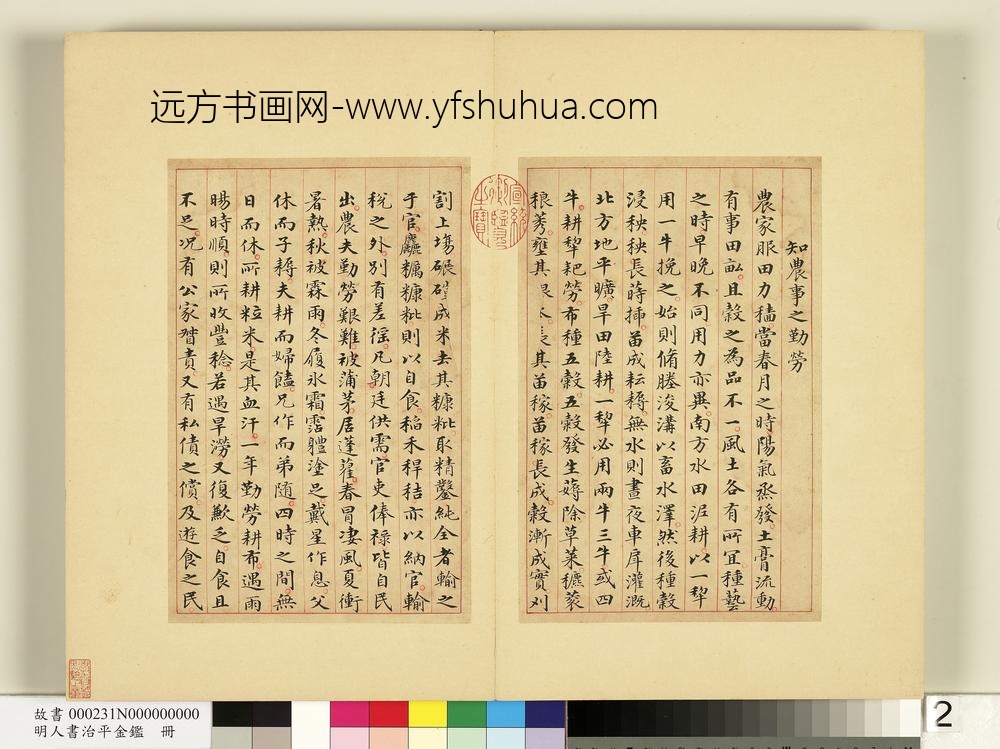 远方书画网-www.yfshuhua.com
知農事之勤勞
農家服田力穡當春月之時陽氣烝發土膏流動
有事田畝且穀之為品不一風土各有所宜種藝
之時早晚不同用力亦異南方水田泥耕以一犂
用一牛挽之始則脩塍浚溝以畜水澤然後種穀
浸秧秧長蒔插苗成耘耨無水則晝夜車戽灌溉
北方地平曠旱田陸耕一犂必用兩牛三牛或四
牛耕犂耙勞布種五穀五穀發生薅除草萊穮蔉
稂莠壅其根 長其苗稼苗稼長成穀漸成實刈
割上場碾 成米去其糠粃取精鑿純全者輸之
于官麤糲糠粃則以自食稻禾稈秸亦以納官輸
稅之外別有差徭凡朝廷供需官吏俸祿皆自民
出農夫勤勞艱難被蒲茅居蓬藋春冒凄風夏衝
暑熱秋被霖雨冬履冰霜霑體塗足戴星作息父
休而子耨夫耕而婦饁兄作而弟隨四時之間無
日而休所耕粒米是其血汗一年勤勞耕布遇雨
暘時順則所收豐稔若遇旱澇又復歉乏自食且
不足况有公家督責又有私債之償及遊食之民
故書 000231N000000000
明人書治平金鑑 冊
2